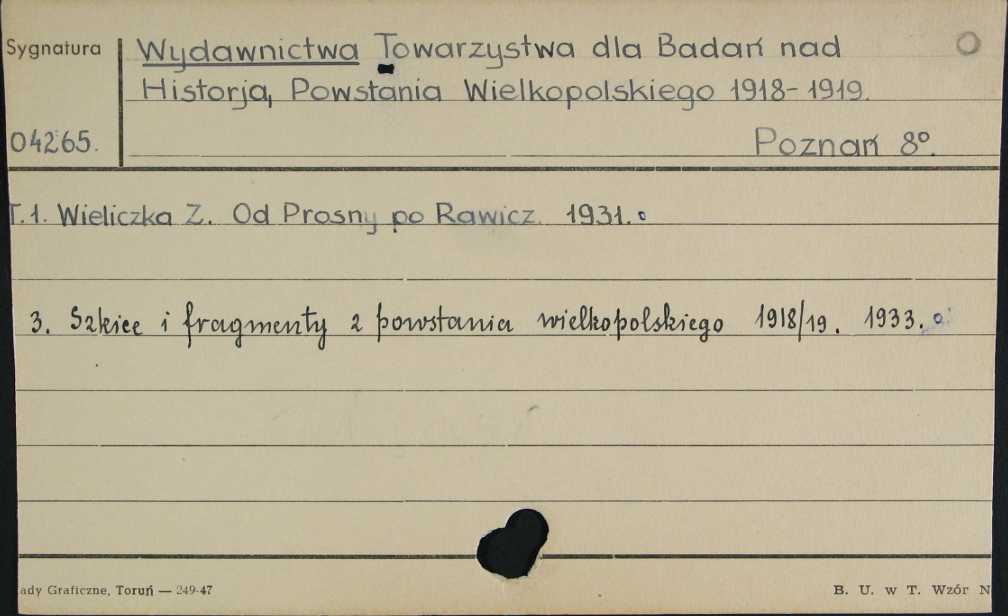 Sygnatura
Wydawnictwa Towarzystwa dla Badań nad
Historją Powstania Wielkopolskiego 1918-1919.
04265.
Poznań 8°.
T.1. Wieliczka Z. Od Prosny po Rawicz. 1931.
3. Szkice i fragmenty z powstania wielkopolskiego 1918/19. 1933.
ady Graficzne, Toruń — 249-47
B. U. w T. Wzór N